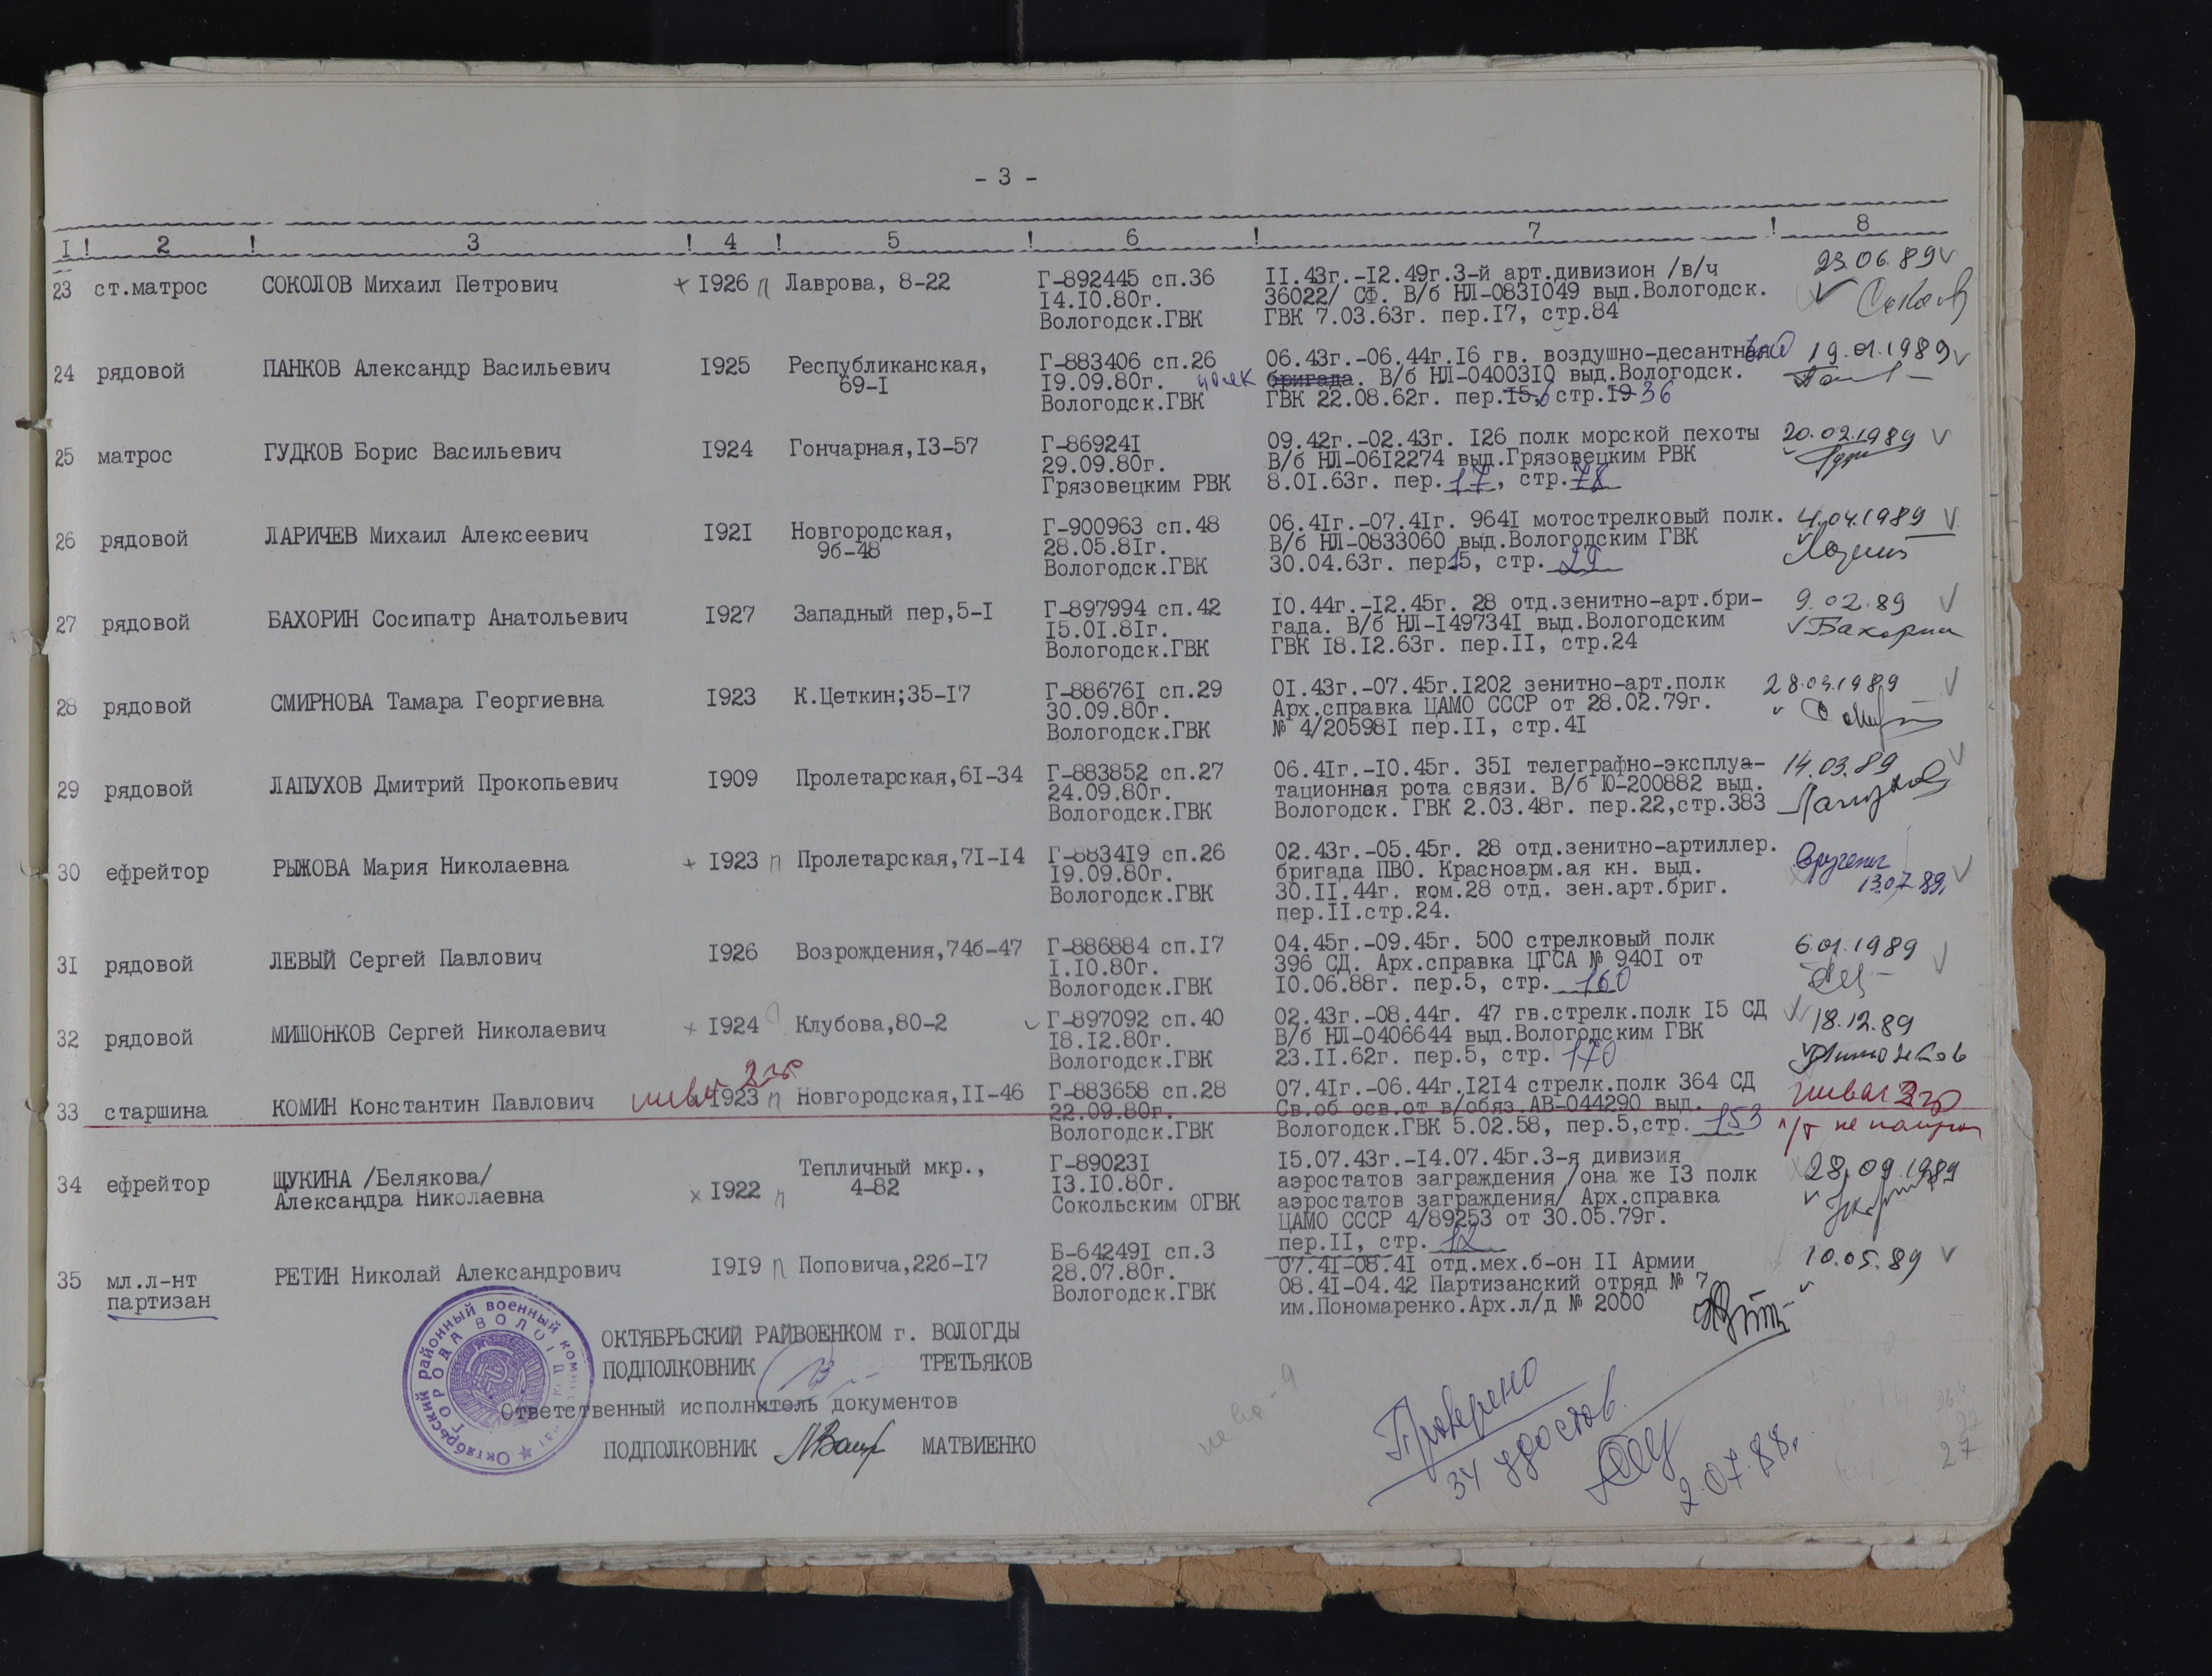 - 3 -
I ! 2 ! 3 ! 4 ! 5 ! 6 ! 7 ! 8
23 ст.матрос СОКОЛОВ Михаил Петрович + I926 п Лаврова, 8-22 Г-892445 сп.36 II.43г.-I2.49г.3-й арт.дивизион /в/ч 23.06.89 v
I4.I0.80г. 36022/ СФ. В/б НЛ-083I049 выд.Вологодск. v
Вологодск.ГВК ГВК 7.03.63г. пер.I7, стр.84
24 рядовой ПАНКОВ Александр Васильевич I925 Республиканская, Г-883406 сп.26 06.43г.-06.44г.I6 гв. воздушно-десантная 19.01.1989 v
69-I I9.09.80г. полк бригада. В/б НЛ-04003I0 выд.Вологодск.
Вологодск.ГВК ГВК 22.08.62г. пер.I5,6 стр.I9 36
25 матрос ГУДКОВ Борис Васильевич I924 Гончарная,I3-57 Г-86924I 09.42г.-02.43г. I26 полк морской пехоты 20.02.1989 v
29.09.80г. В/б НЛ-06I2274 выд.Грязовецким РВК
Грязовецким РВК 8.0I.63г. пер. 17, стр. 78
26 рядовой ЛАРИЧЕВ Михаил Алексеевич I92I Новгородская, Г-900963 сп.48 06.4Iг.-07.4Iг. 964I мотострелковый полк. 4.04.1989 v
9б-48 28.05.8Iг. В/б НЛ-0833060 выд.Вологодским ГВК
Вологодск.ГВК 30.04.63г. пер.15, стр. 29
27 рядовой БАХОРИН Сосипатр Анатольевич I927 Западный пер,5-I Г-897994 сп.42 I0.44г.-I2.45г. 28 отд.зенитно-арт.бри- 9.02.89 v
I5.0I.8Iг. гада. В/б НЛ-I49734I выд.Вологодским v Бахорин
Вологодск.ГВК ГВК I8.I2.63г. пер.II, стр.24
28 рядовой СМИРНОВА Тамара Георгиевна I923 К.Цеткин;35-I7 Г-88676I сп.29 0I.43г.-07.45г.I202 зенитно-арт.полк 28.03.1989 v
30.09.80г. Арх.справка ЦАМО СССР от 28.02.79г.
Вологодск.ГВК № 4/20598I пер.II, стр.4I
29 рядовой ЛАПУХОВ Дмитрий Прокопьевич I909 Пролетарская,6I-34 Г-883852 сп.27 06.4Iг.-I0.45г. 35I телеграфно-эксплуа- 14.03.89 v
24.09.80г. тационная рота связи. В/б Ю-200882 выд.
Вологодск.ГВК Вологодск. ГВК 2.03.48г. пер.22,стр.383
30 ефрейтор РЫЖОВА Мария Николаевна + I923 п Пролетарская,7I-I4 Г-8834I9 сп.26 02.43г.-05.45г. 28 отд.зенитно-артиллер.
I9.09.80г. бригада ПВО. Красноарм.ая кн. выд. 13.07.89. v
Вологодск.ГВК 30.II.44г. ком.28 отд. зен.арт.бриг.
пер.II.стр.24.
31 рядовой ЛЕВЫЙ Сергей Павлович I926 Возрождения,74б-47 Г-886884 сп.I7 04.45г.-09.45г. 500 стрелковый полк 6.01.1989 v
I.I0.80г. 396 СД. Арх.справка ЦГСА № 940I от
Вологодск.ГВК I0.06.88г. пер.5, стр. 160
32 рядовой МИШОНКОВ Сергей Николаевич х I924 Клубова,80-2 v Г-897092 сп.40 02.43г.-08.44г. 47 гв.стрелк.полк I5 СД 18.12.89
I8.I2.80г. В/б НЛ-0406644 выд.Вологодским ГВК
Вологодск.ГВК 23.II.62г. пер.5, стр. 170
33 старшина КОМИН Константин Павлович I923 п Новгородская,II-46 Г-883658 сп.28 07.4Iг.-06.44г.I2I4 стрелк.полк 364 СД
22.09.80г. Св.об осв.от в/обяз.АВ-044290 выд.
Вологодск.ГВК Вологодск.ГВК 5.02.58, пер.5,стр. 153
34 ефрейтор ЩУКИНА /Белякова/ Тепличный мкр., Г-89023I I5.07.43г.-I4.07.45г.3-я дивизия 28.09.1989
Александра Николаевна х I922 п 4-82 I3.I0.80г. аэростатов заграждения /она же I3 полк
Сокольским ОГВК аэростатов заграждения/ Арх.справка
ЦАМО СССР 4/89253 от 30.05.79г.
пер.II, стр. 12
35 мл.л-нт РЕТИН Николай Александрович I9I9 п Поповича,22б-I7 Б-64249I сп.3 07.4I-08.4I отд.мех.б-он II Армии 10.05.89 v
партизан 28.07.80г. 08.4I-04.42 Партизанский отряд № 7
Вологодск.ГВК им.Пономаренко.Арх.л/д № 2000
Октябрьский районный военный комиссариат
ГОРОДА ВОЛОГДЫ
ОКТЯБРЬСКИЙ РАЙВОЕНКОМ г. ВОЛОГДЫ
ПОДПОЛКОВНИК ТРЕТЬЯКОВ
Ответственный исполнитель документов
ПОДПОЛКОВНИК МАТВИЕНКО
Проверено
34 удостов.
2.07.88.
27